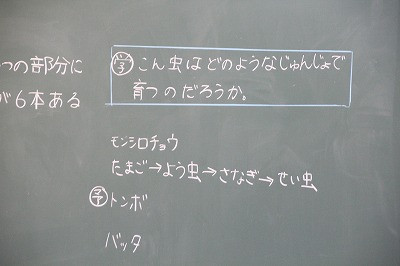 つの部分に
が6本ある
こん虫はどのようなじゅんじょで
育つのだろうか。
モンシロチョウ
たまご→よう虫→さなぎ→せい虫
予トンボ
バッタ